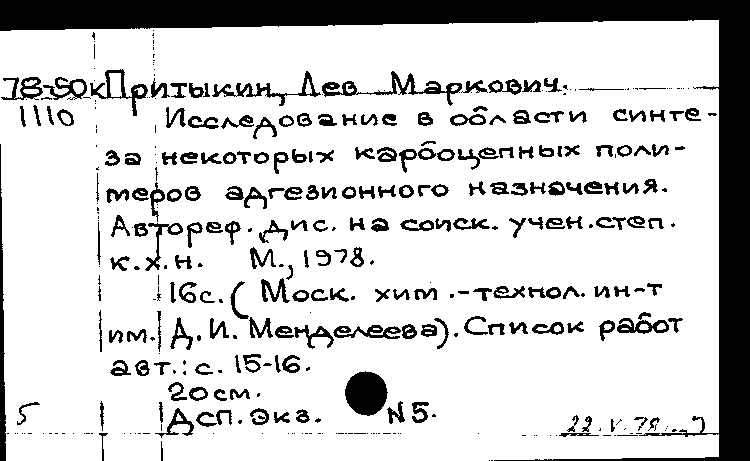 78-50к Притыкин, Лев Маркович.
1110 Исследование в области синте-
за некоторых карбоцепных поли-
меров адгезионного назначения.
Автореф. дис. на соиск. учен. степ.
к.х.н. М., 1978.
16с. (Моск. хим.-технол. ин-т
им. Д. И. Менделеева). Список работ
авт.: с. 15-16.
20см.
5 Дсп. Экз. N5.
22.V.78